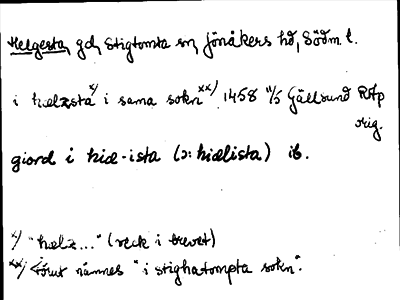 Helgesta, gd, Stigtomta sn, Jönåkers hd, Södm l.
i hælzsta x) i sama sokn xx) 1458 11/5 Gällsund RAp
orig.
giord i hiæ-ista (ɔ: hiælista) ib.
x) "hælz..." (veck i brevet)
xx) Förut nämnes "i stighatompta sokn".